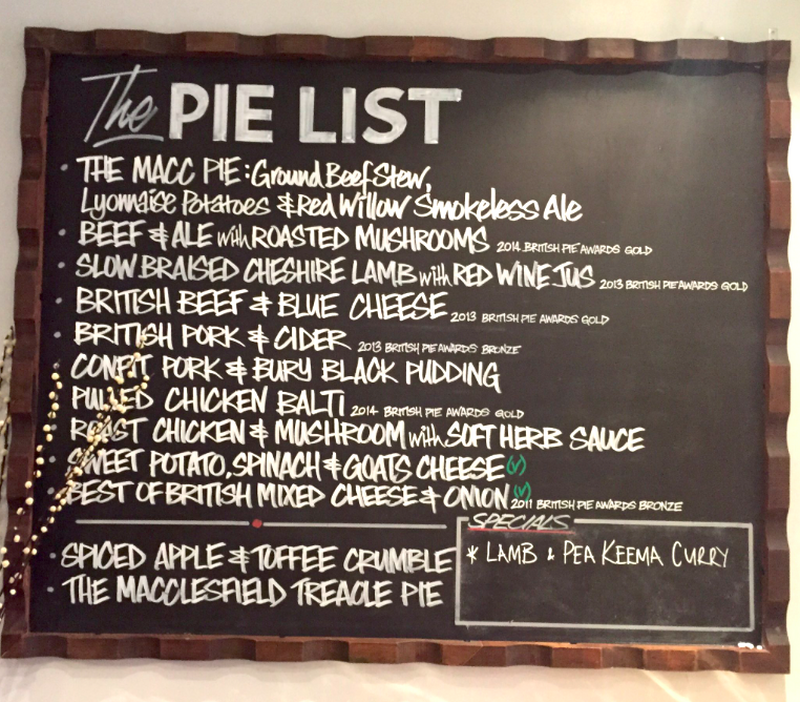 The PIE LIST
• THE MACC PIE: Ground Beef Stew,
Lyonnaise Potatoes & Red Willow Smokeless Ale
• BEEF & ALE with ROASTED MUSHROOMS 2014 BRITISH PIE AWARDS GOLD
• SLOW BRAISED CHESHIRE LAMB with RED WINE JUS 2013 BRITISH PIE AWARDS GOLD
• BRITISH BEEF & BLUE CHEESE 2013 BRITISH PIE AWARDS GOLD
• BRITISH PORK & CIDER 2013 BRITISH PIE AWARDS BRONZE
• CONFIT PORK & BURY BLACK PUDDING
• PULLED CHICKEN BALTI 2014 BRITISH PIE AWARDS GOLD
• ROAST CHICKEN & MUSHROOM with SOFT HERB SAUCE
• SWEET POTATO, SPINACH & GOATS CHEESE (V)
• BEST OF BRITISH MIXED CHEESE & ONION (V) 2011 BRITISH PIE AWARDS BRONZE
• SPICED APPLE & TOFFEE CRUMBLE
• THE MACCLESFIELD TREACLE PIE
SPECIALS
* LAMB & PEA KEEMA CURRY